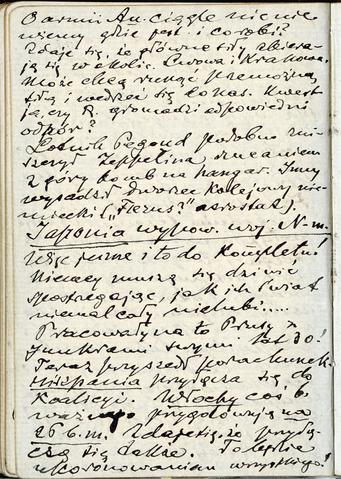 O armii Au. ciągle nic nie
wiemy gdzie jest i co robi?
Zdaje się, że główne siły zbiera-
ją się w okolic. Lwowa i Krakowa.
Może chcą runąć przemożną
siłą i wedrzeć się do nas. Kwest-
ja, czy R. gromadzi odpowiedni
odpór?
Lotnik Pegoud podobno zni-
szczył Zeppelina rzucaniem
z góry bomb na hangar. Inny
wysadził dworzec kolejowy nie-
miecki („ " aerostat).
Japonia wypow. woj. N-m.
Więc jeszcze i to do kompletu!
Niemcy muszą się dziwić
spostrzegając, jak ich świat
niemal cały nie lubi.....
Pracowały na to Prusy z
Junkrami swymi lat 30!
Teraz przyszedł porachunek.
Hiszpania przyłącza się do
Koalicyi. Włochy coś b.
ważnego przygotowują na
26 b.m. Zdaje się, że przyłą-
czą się także. To będzie
ukoronowaniem wszystkiego!